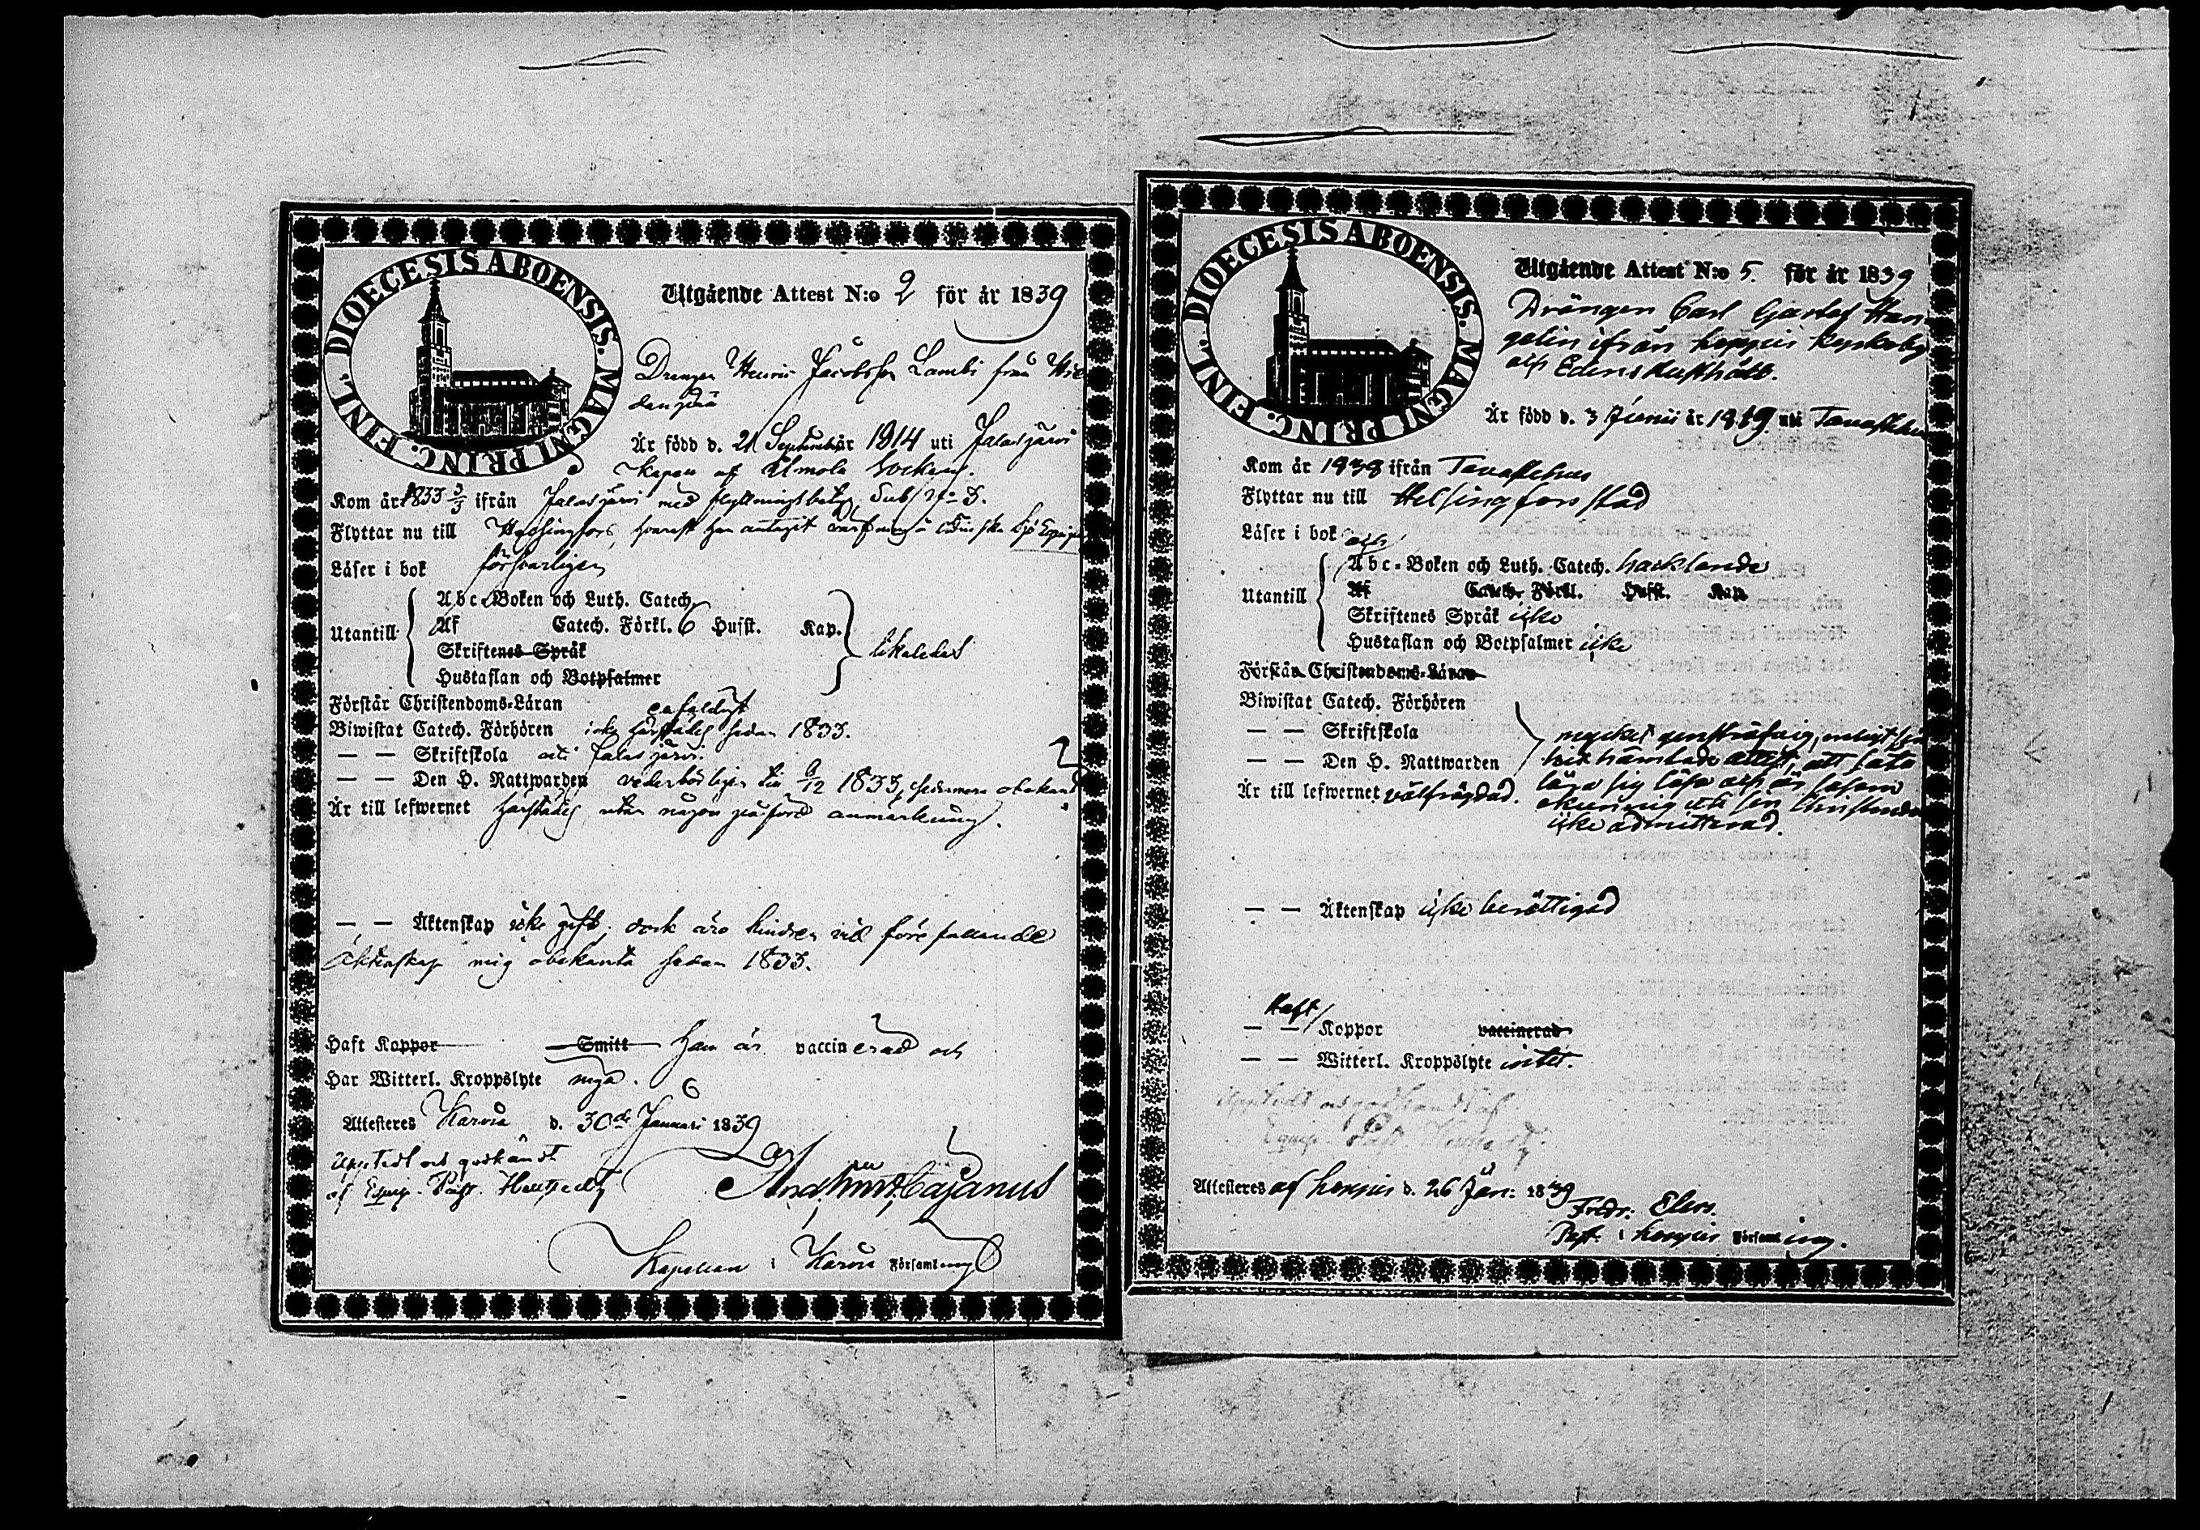 DIOECESIS ABOENSIS. MAGNI PRINC. FINL.
Utgående Attest N:o 2 för år 1839
Drängen Henric Jacobsson Lambi från
Är född d. 21 September 1814 uti Jalasjärvi
Kapell af Ilmola Sockn.
Kom år 1833 3/3 ifrån Jalasjärvi med flyttningsbetyg Sub N:o 3.
Flyttar nu till Helsingfors, hvarest han antagit Finska Sjö Equipagen
Läser i bok försvarligen
Utantill
Abc-Boken och Luth. Catech.
Af Catech. Förkl. 6 Husst. Kap.
Skriftenes Språk
Hustaflan och Botpsalmer
likaledes
Förstår Christendoms-Läran enfaldigt
Biwistat Catech. Förhören icke härstädes sedan 1833.
— — Skriftskola uti Jalasjärvi.
— — Den H. Nattwarden wederbörligen till 9/12 1833, sedermera obekant
Är till lefwernet härstädes utan någon påförd anmärkning.
— — Äktenskap icke gift; dock äro hinder vid förefallande
Äktenskap mig obekanta sedan 1833.
Haft Koppor Smitt Han är vaccinerad och
Har Witterl. Kroppslyte inga.
Attesteres Karvia d. 30de Januari 1839
Uppvist och godkändt
af Equip. Past.
Cajanus
Kapellan i Karvia Församling
DIOECESIS ABOENSIS. MAGNI PRINC. FINL.
Utgående Attest N:o 5. för år 1839
Drängen Carl Gustaf Han-
gelin ifrån Loppis Kyrkoby
och
Är född d. 3 Junii år 1819 uti Tavastehus
Kom år 1838 ifrån Tavastehus
Flyttar nu till Helsingfors stad
Läser i bok och
Utantill
Abc-Boken och Luth. Catech. hacklande
Af Catech. Förkl. Husst. Kap.
Skriftenes Språk icke
Hustaflan och Botpsalmer icke
Förstår Christendoms-Läran
Biwistat Catech. Förhören
— — Skriftskola
— — Den H. Nattwarden
Är till lefwernet välfrägdad.
mycket gensträfvig, enligt
hit hämtade attest, att låta
lära sig läsa och är såsom
okunnig uti sin Christendom
icke admitterad.
— — Äktenskap icke berättigad
— — Haft Koppor vaccinerad
— — Witterl. Kroppslyte intet.
Attesteres af Loppis d. 26 Jan: 1839
Fredr: Elers.
Past: i Loppis Församling.